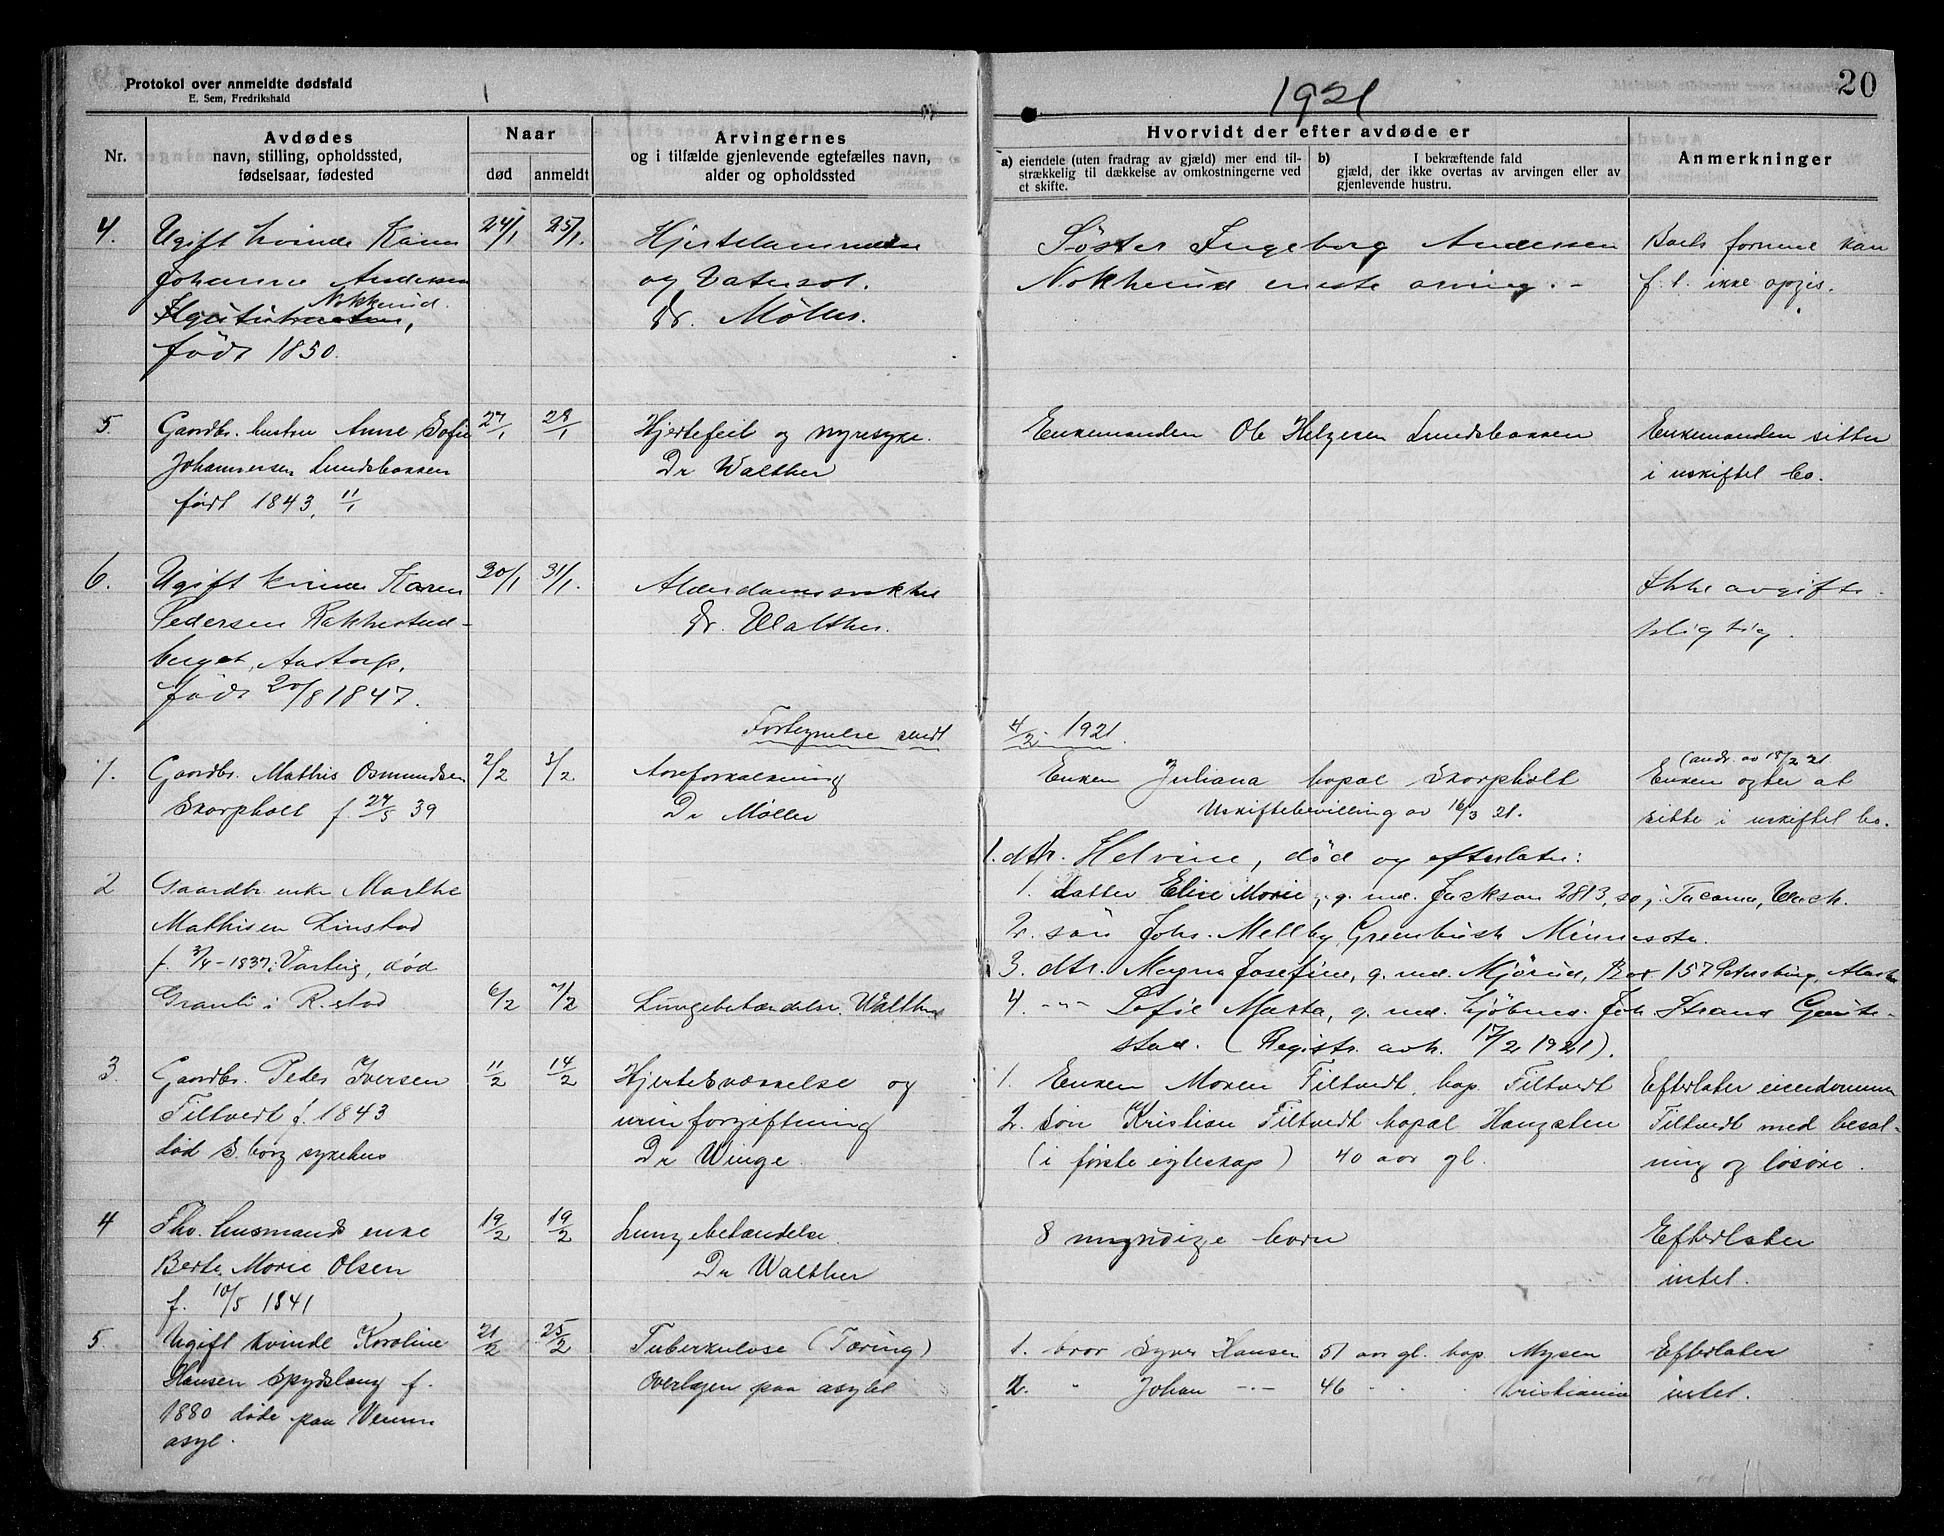 Protokol over anmeldte dødsfald
E. Sem, Fredrikshald
1921
20
Nr.
Avdødes
navn, stilling, opholdssted,
fødselsaar, fødested
Naar
død
anmeldt
Arvingernes
og i tilfælde gjenlevende egtefælles navn,
alder og opholdssted
Hvorvidt der efter avdøde er
a) eiendele (uten fradrag av gjæld) mer end til-
strækkelig til dækkelse av omkostningerne ved
et skifte.
b) I bekræftende fald
gjæld, der ikke overtas av arvingen eller av
gjenlevende hustru.
Anmerkninger
4.
Ugift kvinde Karen
Johanne Andersen
Nokkerud.
født 1850.
24/1
25/1.
Hjertelammelse
og Vatersot.
Dr. Møller.
Søster Ingeborg Andersen
Nokkerud eneste arving. -
Boets formue kan
f. t. ikke opgis.
5.
Gaardbr. hustru Anne Sofie
Johannesen Lundsbakken
født 1843, 11/1
27/1
28/1
Hjertefeil og nyresyke.
Dr Walther
Enkemanden Ole Helgesen Lundsbakken
Enkemanden sitter
i uskiftet bo.
6.
Ugift kvinde Karen
Pedersen Rakkestad-
berget, Aastorp,
født 20/8 1847.
30/1
31/1.
Alderdomssvakhet
Dr. Walther.
Ikke avgifts-
pligtig.
Fortegnelse sendt
4/2 - 1921.
1.
Gaardbr. Mathis Osmundsen
Skorpholt f. 27/5 39
2/2
3/2
Aareforkalkning
Dr Møller
Enken Juliana bopæl Skorpholt
Uskiftebevilling av 16/3 21.
(andr. av 18/2 21
Enken agter at
sitte i uskiftet bo.
2
Gaardbr. enke Marthe
Mathisen Linstad
f. 3/4 - 1837, Varteig, død
Granli i R.stad
6/2
7/2
Lungebetændelse. Walther
1. dtr. Helvine, død og efterlater:
1. datter Elise Marie, g. md. Jackson 2813, so j. Tacoma, Wash.
2. søn Johs. Mellby, Greenbush Minnesota.
3. dtr. Magna Josefine, g. md. Mjørud, Box 157 Petersburg, Alaska
4. -"- Sofie Marta, g. md. kjøbmd. Joh. Strand Gaute-
stad. (Registr. avh. 17/2 1921).
3.
Gaardbr. Peder Iversen
Tiltvedt f. 1843
død S.borg sykehus
11/2
14/2
Hjertesvækkelse og
urinforgiftning
Dr Winge.
1. Enken Maren Tiltvedt, bop. Tiltvedt
2. søn Kristian Tiltvedt bopæl Hangsten
(i første egteskap) 40 aar gl.
Efterlater eiendommen
Tiltvedt med besæt-
ning og løsøre.
4
Fhv. husmands enke
Berte Marie Olsen
f. 10/5 1841
19/2
19/2
Lungebetændelse.
Dr Walther
8 myndige barn
Efterlater
intet.
5.
Ugift kvinde Karoline
Hansen Spydslaug f.
1880 døde paa Venum
asyl.
21/2
25/2
Tuberkulose (Tæring)
Overlægen paa asylet
1. bror Syver Hansen 51 aar gl. bop. Mysen
2. " Johan -"- 46 " " " Kristiania
Efterlater
intet.